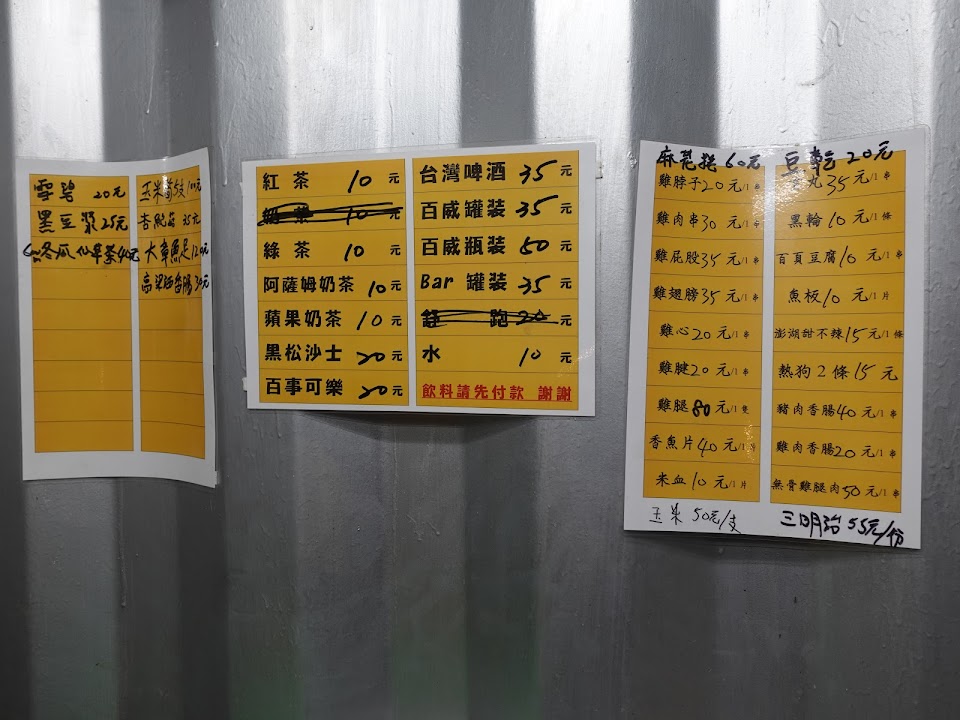 雪碧 20元
黑豆漿 25元
冬瓜仙草茶 40元
玉米筍 100元
杏鮑菇 35元
大章魚足 120元
高粱酒香腸 30元
紅茶 10 元
奶茶 10 元
綠茶 10 元
阿薩姆奶茶 10 元
蘋果奶茶 10 元
黑松沙士 20 元
百事可樂 20 元
台灣啤酒 35 元
百威罐裝 35 元
百威瓶裝 50 元
Bar 罐裝 35 元
跑 20 元
水 10 元
飲料請先付款 謝謝
60元
雞脖子20元/1串
雞肉串30元/1串
雞屁股35元/1串
雞翅膀35元/1串
雞心20元/1串
雞腱20元/1串
雞腿80元/1隻
香魚片40元/1片
米血10元/1片
玉米 50元/支
豆乾 20元
丸35元/1串
黑輪10元/1條
百頁豆腐10元/1串
魚板10元/1片
澎湖甜不辣15元/1條
熱狗2條15元
豬肉香腸40元/1串
雞肉香腸20元/1串
無骨雞腿肉50元/1串
三明治 55元/份